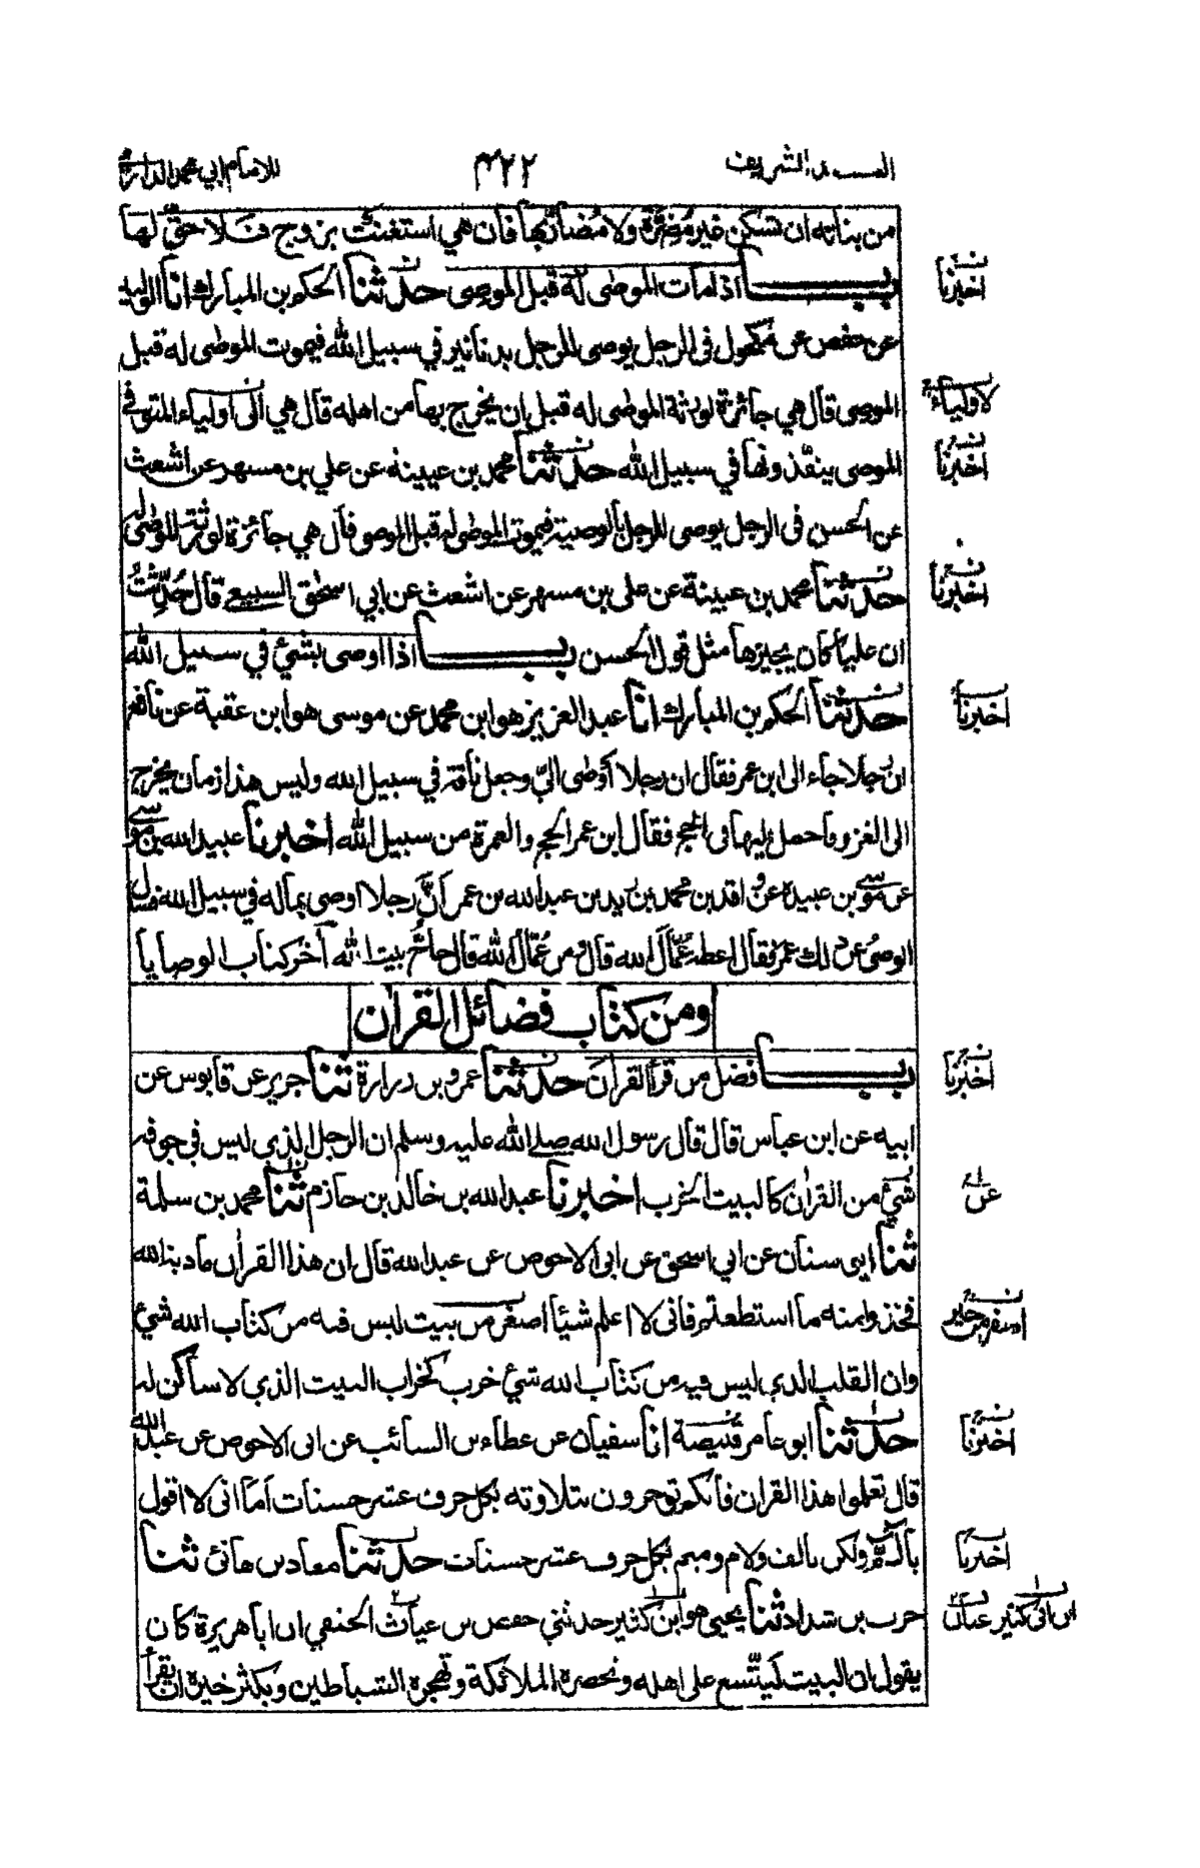 المسند الشريف ٤٢٢ للامام ابي محمد الدارمي
من بناته ان تسكن غير مُضِرَّة ولا مُضَارٍّ بها فان هي استغنت بزوج فلا حق لها
باب اذا مات الموصى له قبل الموصى حدثنا الحكم بن المبارك انا الوليد
اخبرنا
عن حفص عن مكحول في الرجل يوصى للرجل بدنانير في سبيل الله فيموت الموصى له قبل
الموصى قال هي جائزة لورثة الموصى له قبل ان يخرج بها من اهله قال هي الى اولياء المتوفى
لاولياء
الموصى ينفذونها في سبيل الله حدثنا محمد بن عيينة عن علي بن مسهر عن اشعث
اخبرنا
عن الحسن في الرجل يوصى للرجل بالوصية فيموت الموصى له قبل الموصى قال هي جائزة لورثة الموصى له
حدثنا محمد بن عيينة عن على بن مسهر عن اشعث عن ابي اسحٰق السبيعي قال حُدِّثْتُ
اخبرنا
ان عليا كان يجيزها مثل قول الحسن باب اذا اوصى بشئ في سبيل الله
حدثنا الحكم بن المبارك انا عبد العزيز هو ابن محمد عن موسى هو ابن عقبة عن نافع
اخبرنا
ان رجلا جاء الى ابن عمر فقال ان رجلا اوصى اليّ وجعل ناقة في سبيل الله وليس هذا زمان يخرج
الى الغزو فاحمل عليها في الحج فقال ابن عمر الحج والعمرة من سبيل الله اخبرنا عبيد الله بن موسى
عن موسى بن عبيدة عن واقد بن محمد بن زيد بن عبد الله بن عمر انَّ رجلا اوصى بماله في سبيل الله فسأل
الوصيُّ عن ذلك عمر فقال اعطه عُمَّالَ الله قال ومن عُمَّالُ الله قال حاجُّ بيت الله آخر كتاب الوصايا
ومن كتاب فضائل القراٰن
باب فضل من قرأ القراٰن حدثنا عمرو بن زرارة ثنا جرير عن قابوس عن
اخبرنا
ابيه عن ابن عباس قال قال رسول الله صلى الله عليه وسلم ان الرجل الذي ليس في جوفه
شئ من القراٰن كالبيت الخرب اخبرنا عبد الله بن خالد بن حازم ثنا محمد بن سلمة
عن
ثنا ابي سنان عن ابي اسحق عن ابي الاحوص عن عبد الله قال ان هذا القراٰن مادبة الله
فخذوا منه ما استطعتم فاني لا اعلم شيئا اصغر من بيت ليس فيه من كتاب الله شئ
اصفر من خير
وان القلب الذي ليس فيه من كتاب الله شئ خرب كخراب البيت الذي لا ساكن له
حدثنا ابو عامر قبيصة انا سفيان عن عطاء بن السائب عن ابي الاحوص عن عبد الله
اخبرنا
قال تعلموا هذا القران فانكم توجرون بتلاوته بكل حرف عشر حسنات اما اني لا اقول
بآلٓمّٓ ولكن بالف ولام وميم بكل حرف عشر حسنات حدثنا معاذ بن هانئ ثنا
اخبرنا
حرب بن شداد ثنا يحيى هو ابن كثير حدثني حفص بن عياث الحنفي ان ابا هريرة كان
ابن ابي كثير عنان
يقول ان البيت ليتّسع على اهله وتحضره الملائكة وتهجره الشياطين ويكثر خيره ان يقرأ